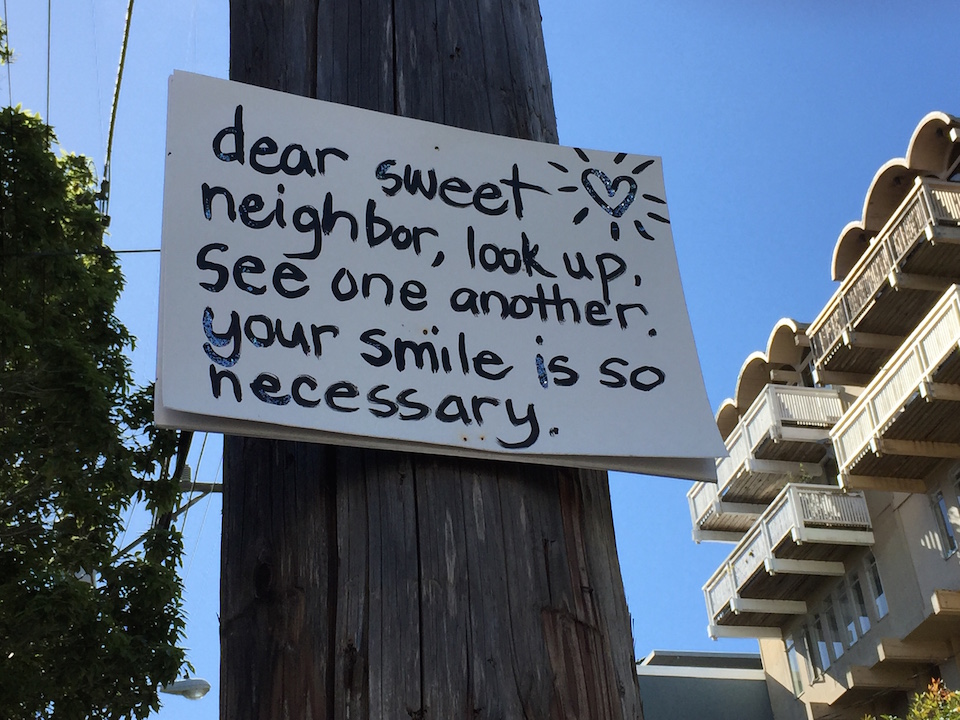 dear sweet
neighbor, look up,
See one another.
your smile is so
necessary.